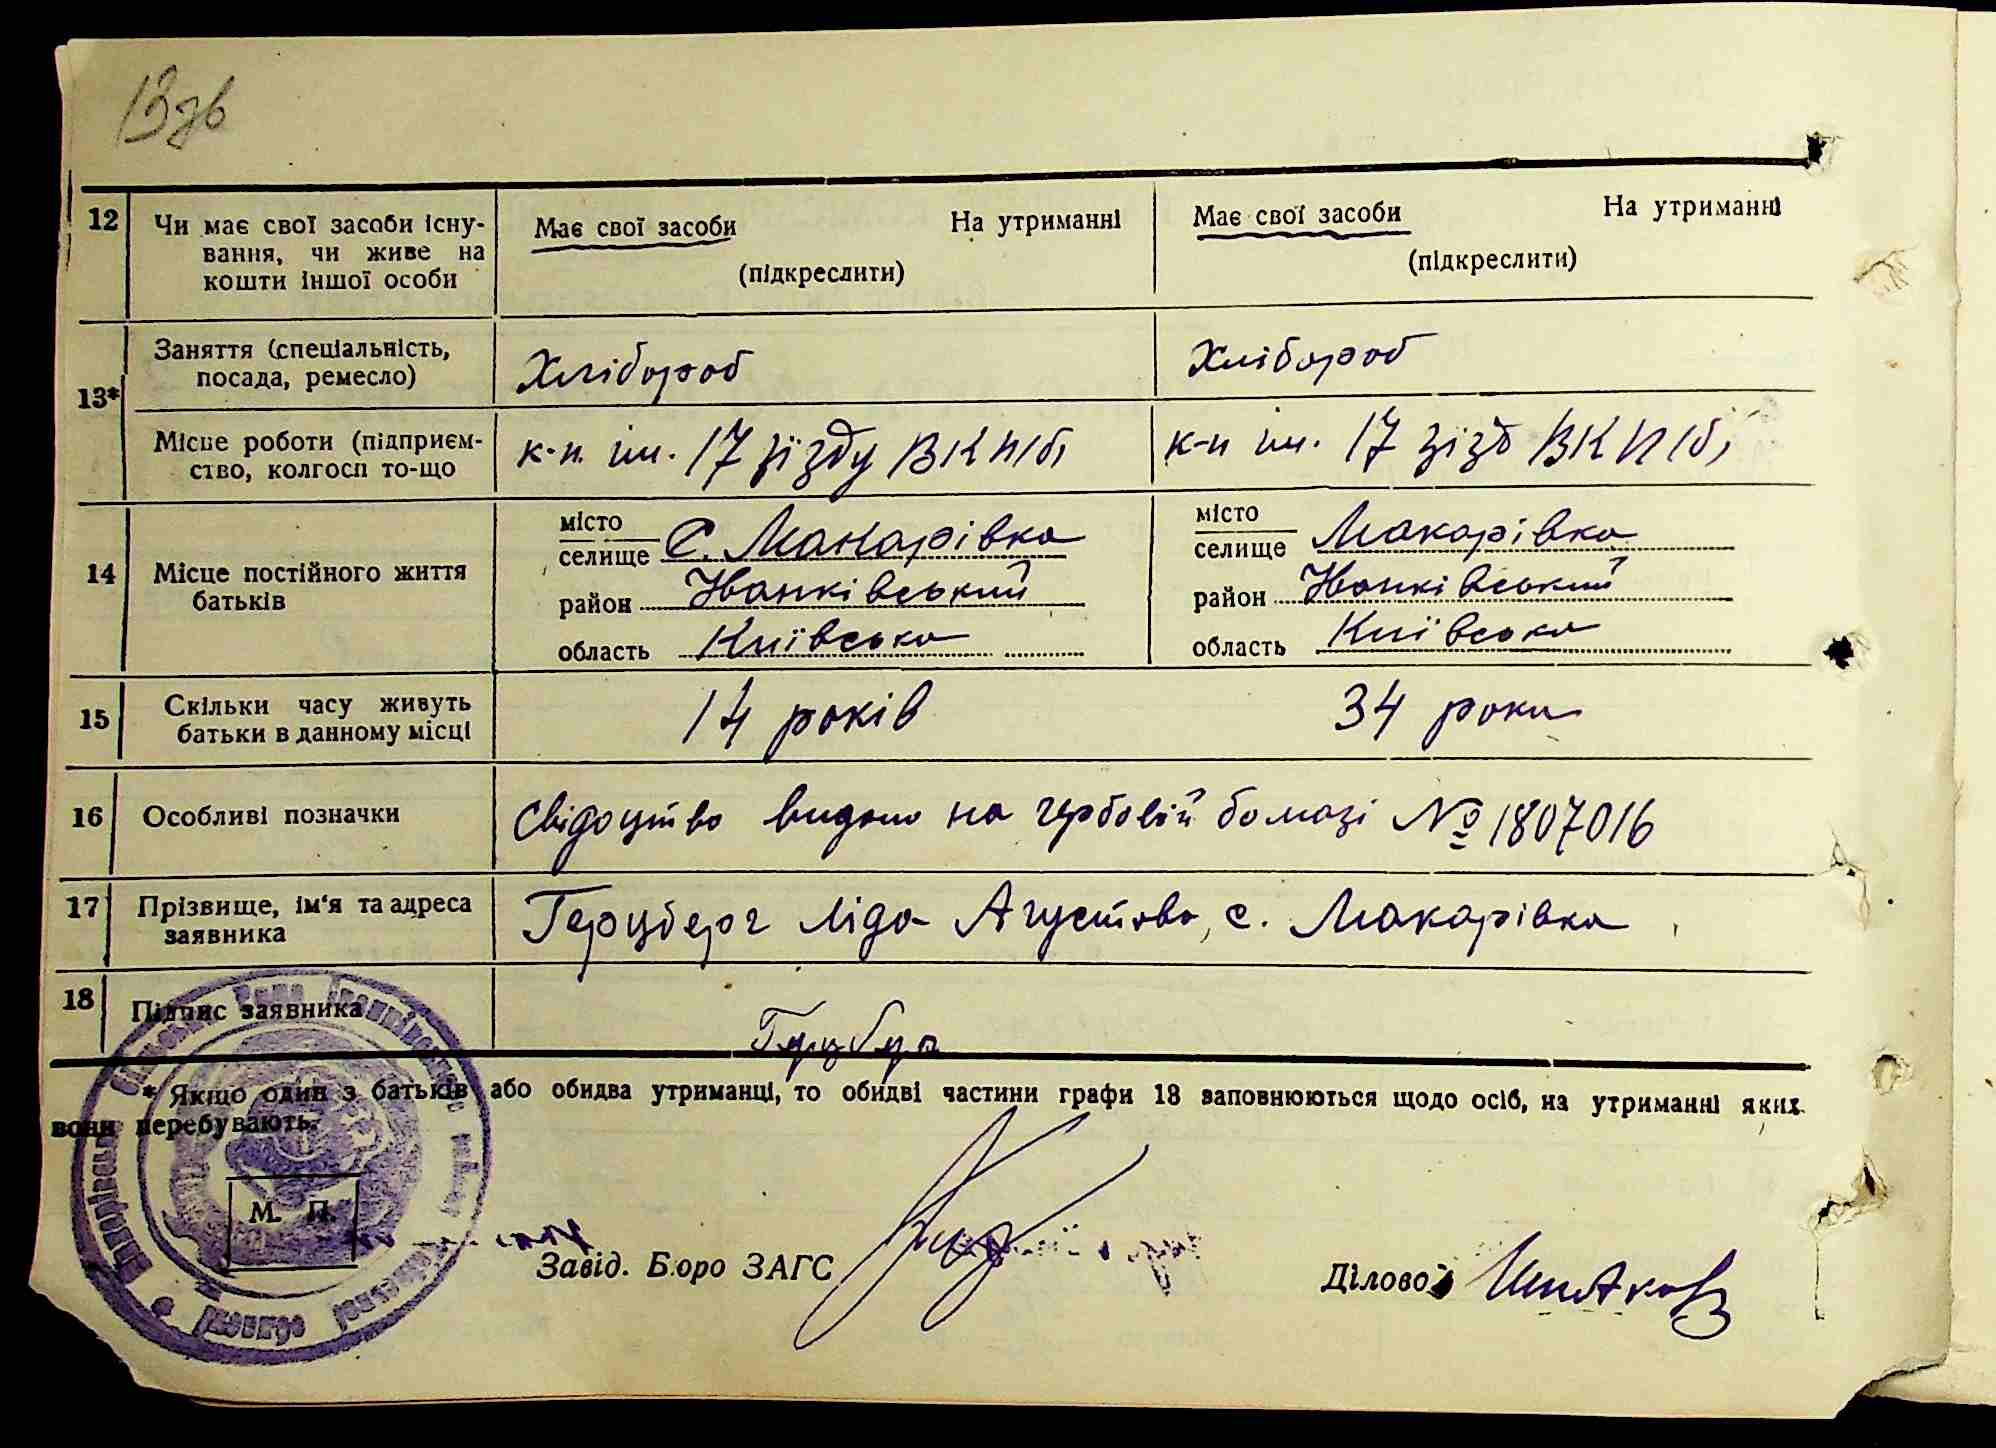 13зв
12 Чи має свої засоби існу- Має свої засоби На утриманні Має свої засоби На утриманні
вання, чи живе на
кошти іншої особи (підкреслити) (підкреслити)
Заняття (спеціальність, Хлібороб Хлібороб
13* посада, ремесло)
Місце роботи (підприєм- к-п ім. 17 зїзду ВКП(б) к-п ім. 17 зїзд ВКП(б)
ство, колгосп то-що
місто місто
селище С. Макарівка селище Макарівка
14 Місце постійного життя район Іванківський район Іванківський
батьків область Київська область Київська
15 Скільки часу живуть 14 років 34 роки
батьки в данному місці
16 Особливі позначки Свідоцтво видано на гербовій бомазі № 1807016
17 Прізвище, ім'я та адреса Герцберг Ліда Агустова, с. Макарівка
заявника
18 Підпис заявника
* Якщо один з батьків або обидва утриманці, то обидві частини графи 13 заповнюються щодо осіб, на утриманні яких
вони перебувають.
М. П.
Завід. Бюро ЗАГС Діловод